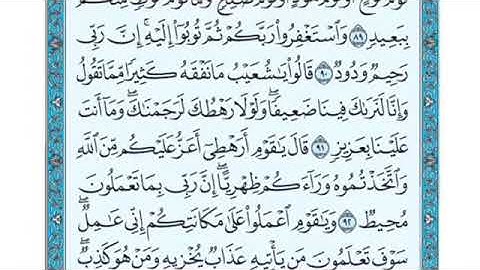 بِبَعِيدٍ ٨٩ وَٱسْتَغْفِرُوا۟ رَبَّكُمْ ثُمَّ تُوبُوٓا۟ إِلَيْهِ ۚ إِنَّ رَبِّى
رَحِيمٌ وَدُودٌ ٩٠ قَالُوا۟ يَـٰشُعَيْبُ مَا نَفْقَهُ كَثِيرًا مِّمَّا تَقُولُ
وَإِنَّا لَنَرَىٰكَ فِينَا ضَعِيفًا ۖ وَلَوْلَا رَهْطُكَ لَرَجَمْنَـٰكَ ۖ وَمَآ أَنتَ
عَلَيْنَا بِعَزِيزٍ ٩١ قَالَ يَـٰقَوْمِ أَرَهْطِىٓ أَعَزُّ عَلَيْكُم مِّنَ ٱللَّهِ
وَٱتَّخَذْتُمُوهُ وَرَآءَكُمْ ظِهْرِيًّا ۖ إِنَّ رَبِّى بِمَا تَعْمَلُونَ
مُحِيطٌ ٩٢ وَيَـٰقَوْمِ ٱعْمَلُوا۟ عَلَىٰ مَكَانَتِكُمْ إِنِّى عَـٰمِلٌ ۖ
سَوْفَ تَعْلَمُونَ مَن يَأْتِيهِ عَذَابٌ يُخْزِيهِ وَمَنْ هُوَ كَـٰذِبٌ ۖ